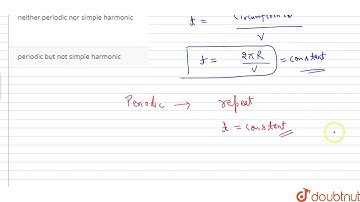 neither periodic nor simple harmonic
periodic but not simple harmonic
t =
V
t = 2πR / V = constant
Periodic → repeat
t = constant
doubtnut